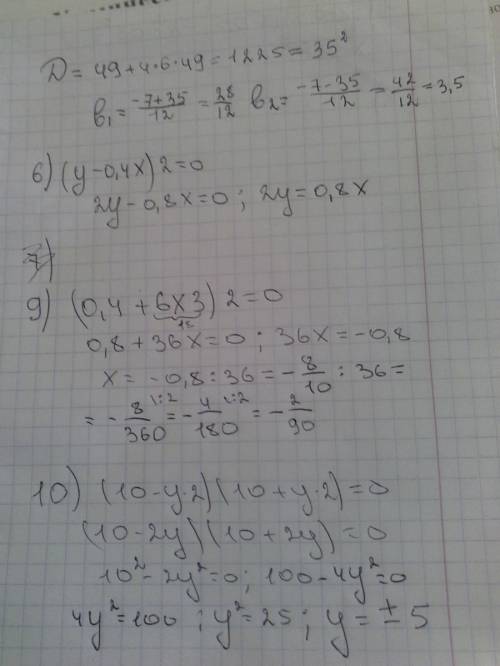 D = 49 + 4·6·49 = 1225 = 35²
b₁ = (-7+35)/12 = 28/12 b₂ = (-7-35)/12 = 42/12 = 3,5
6) (y - 0,4x) 2 = 0
2y - 0,8x = 0 ; 2y = 0,8x
7)
9) (0,4 + 6x3) 2 = 0
18
0,8 + 36x = 0 ; 36x = -0,8
x = -0,8 : 36 = - 8/10 : 36 =
= - 8/360 \:2 = - 4/180 \:2 = - 2/90
10) (10 - y·2) (10 + y·2) = 0
(10 - 2y) (10 + 2y) = 0
10² - 2y² = 0 ; 100 - 4y² = 0
4y² = 100 ; y² = 25 ; y = ± 5